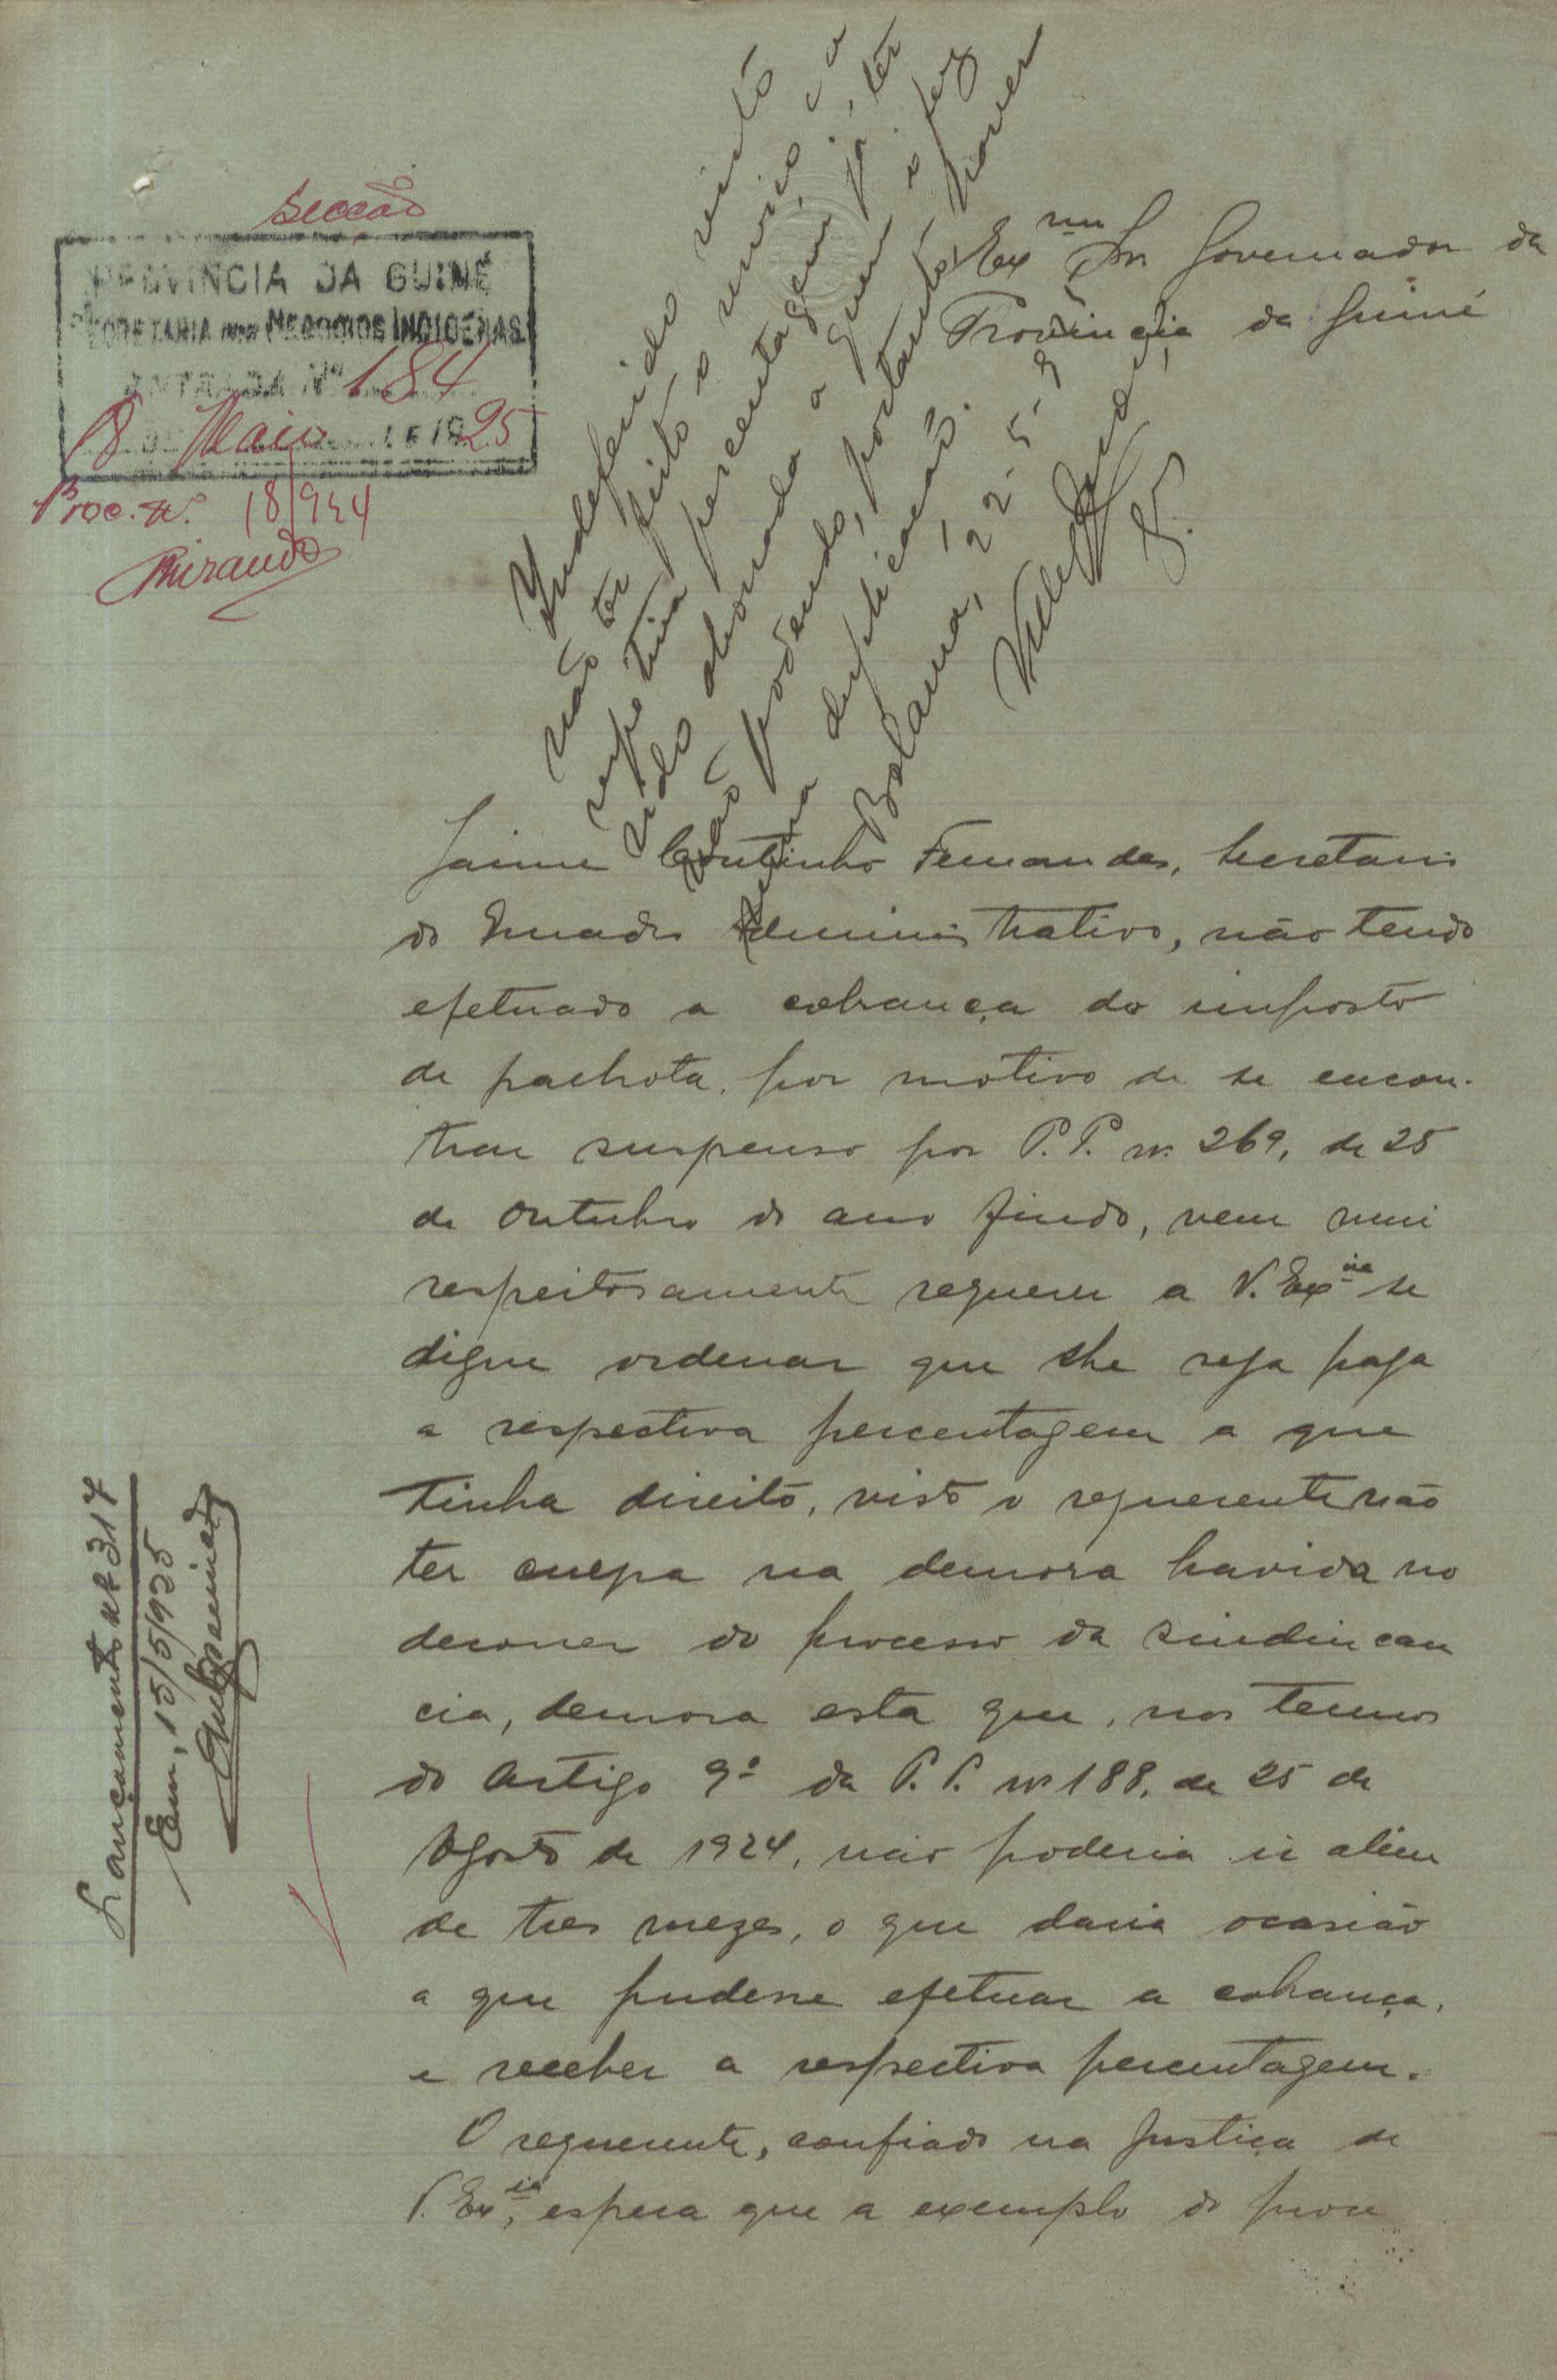 Secção
PROVINCIA DA GUINÉ
SECRETARIA DOS NEGOCIOS INDIGENAS
ENTRADA Nº 184
18 DE Maio DE 1925
Proc. nº 18/924
Miranda
Indeferido visto
não ter feito o serviço e a
respetiva percentagem já ter
sido abonada a quem o fez
não podendo, portanto, haver
duplicação.
Bolama, 22-5-9
Exmo Snr Governador da
Provincia da Guiné
Jaime Coutinho Fernandes, Secretario
do Quadro Administrativo, não tendo
efetuado a cobrança do imposto
de palhota, por motivo de se encon-
trar suspenso por P.P. nº 269, de 25
de Outubro do ano findo, vem mui
respeitosamente requerer a V. Excia se
digne ordenar que lhe seja paga
a respectiva percentagem a que
tinha direito, visto o requerente não
ter culpa na demora havida no
decorrer do processo da sindican
cia, demora esta que, nos termos
do Artigo 9º da P.P. nº 188, de 25 de
Agosto de 1924, não poderia ir além
de tres mezes, o que daria ocasião
a que pudesse efetuar a cobrança,
e receber a respectiva percentagem.
O requerente, confiado na Justiça de
V. Excia, espera que a exemplo do proce
Lançamento nº 317
Em, 15/5/925